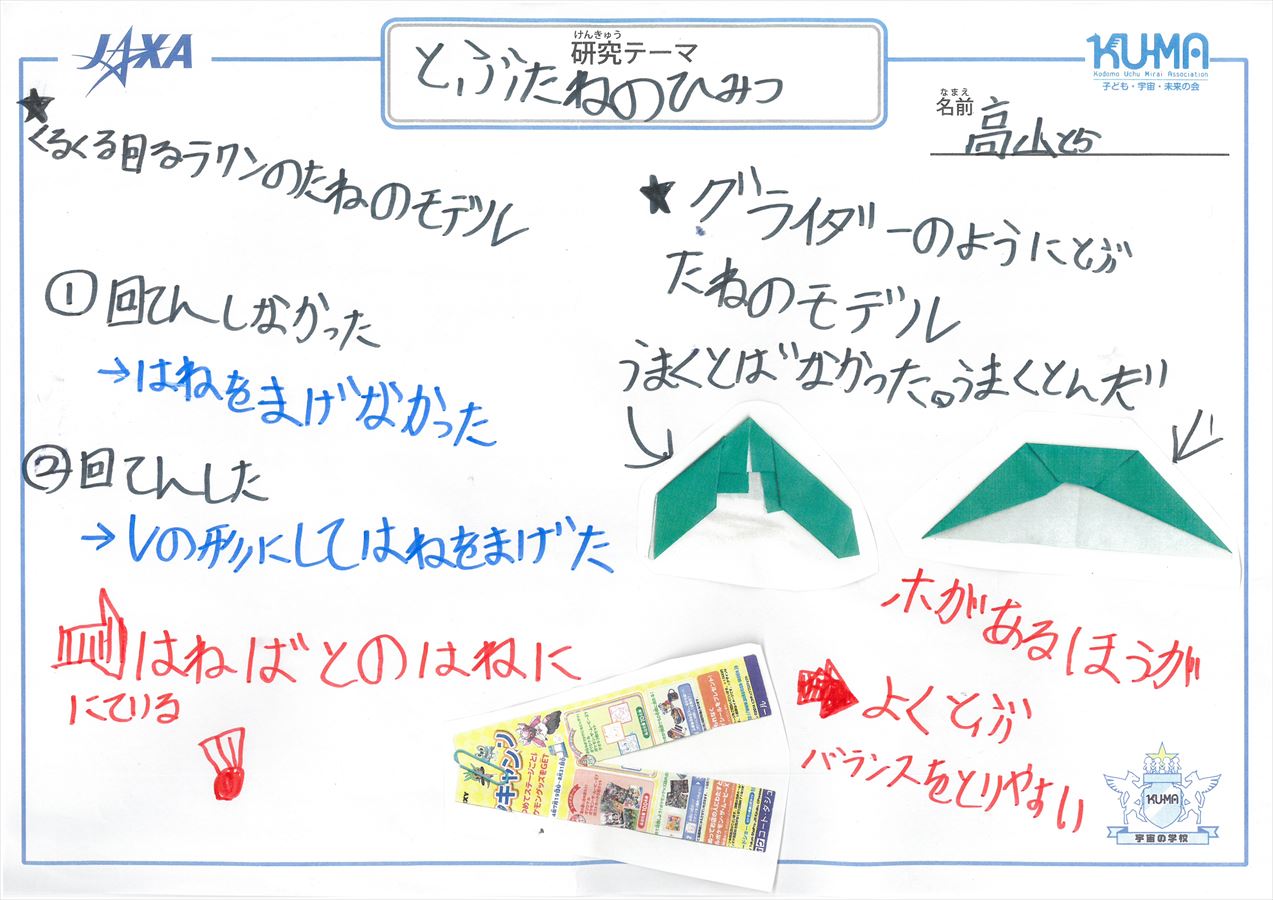 JAXA
けんきゅう
研究テーマ
とぶたねのひみつ
KU-MA
Kodomo Uchu Mirai Association
子ども・宇宙・未来の会
なまえ
名前
高山とら
★
くるくる回るラワンのたねのモデル
① 回てんしなかった
→はねをまげなかった
② 回てんした
→Vの形にしてはねをまげた
はねばとのはねに
にている
★ グライダーのようにとぶ
たねのモデル
うまくとばなかった。うまくとんだ
ホがあるほうが
よくとぶ
バランスをとりやすい
キャンン
KU-MA
宇宙の学校